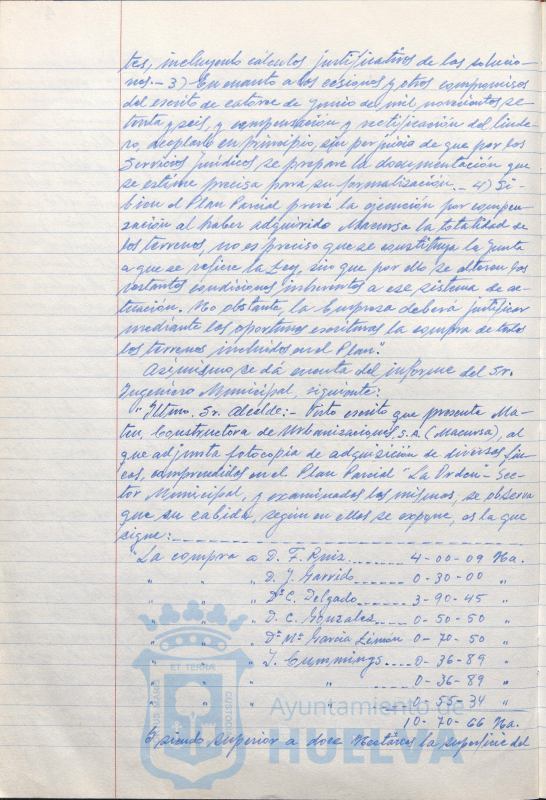 tes, incluyendo cálculos justificativos de las solucio-
nes.- 3) En cuanto a las cesiones y otros compromisos
del escrito de catorce de junio de mil novecientos se-
tenta y seis, y compensación y rectificación del linde-
ro, aceptarlo en principio, sin perjuicio de que por los
Servicios Jurídicos se prepare la documentación que
se estime precisa para su formalización.- 4) Si-
bien el Plan Parcial prevé la ejecución por compen-
zación al haber adquirido Macursa la totalidad de
los terrenos, no es preciso que se constituya la Junta
a que se refiere la Ley, sin que por ello se alteren las
restantes condiciones inherentes a ese sistema de ac-
tuación. No obstante, la Empresa deberá justificar
mediante las oportunas escrituras la compra de todos
los terrenos incluidos en el Plan".
Asimismo se dá cuenta del informe del Sr.
Ingeniero Municipal, siguiente:
"Iltmo. Sr. Alcalde:- Visto escrito que presenta Ma-
teu, Constructora de Urbanizaciones, S.A. (Macursa), al
que adjunta fotocopia de adquisición de diversas fin-
cas, comprendidas en el Plan Parcial "La Orden"- Sec-
tor Municipal, y examinados los mismos, se observa
que su cabida, según en ellos se expone, es la que
sigue:
"La compra a D. F. Ruiz 4-00-09 Ha.
" " " D. J. Garrido 0-30-00 "
" " " Dª C. Delgado 3-90-45 "
" " " D. C. Gonzalez 0-50-50 "
" " " Dª Mª García Limón 0-70-50 "
" " " J. Cummings 0-36-89 "
" " " " 0-36-89 "
" " " " 0-55-34 "
10-70-66 Ha.
Y siendo superior a doce Hectáreas la superficie del
ET TERRA
PORTUS MARIS
CUSTODIA
Ayuntamiento de
HUELVA